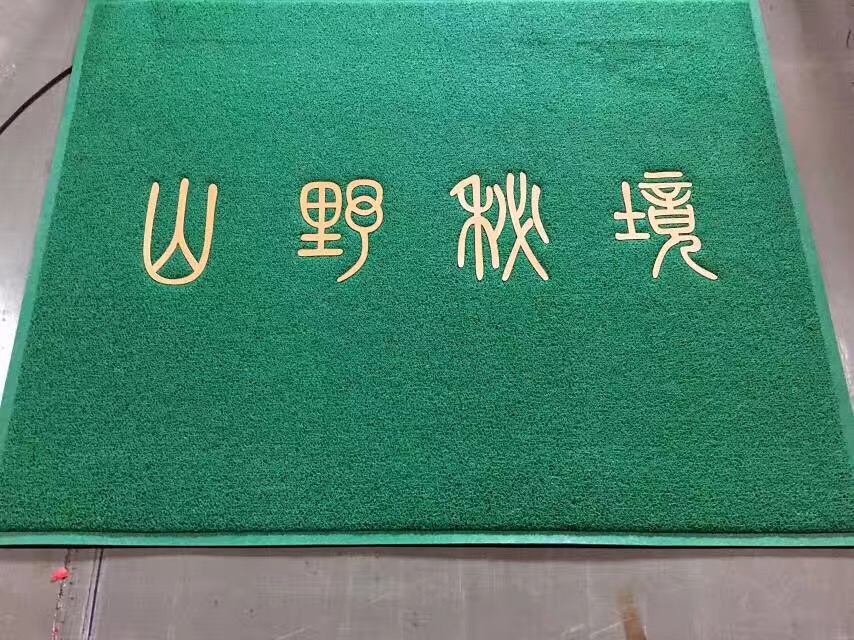 山野秘境